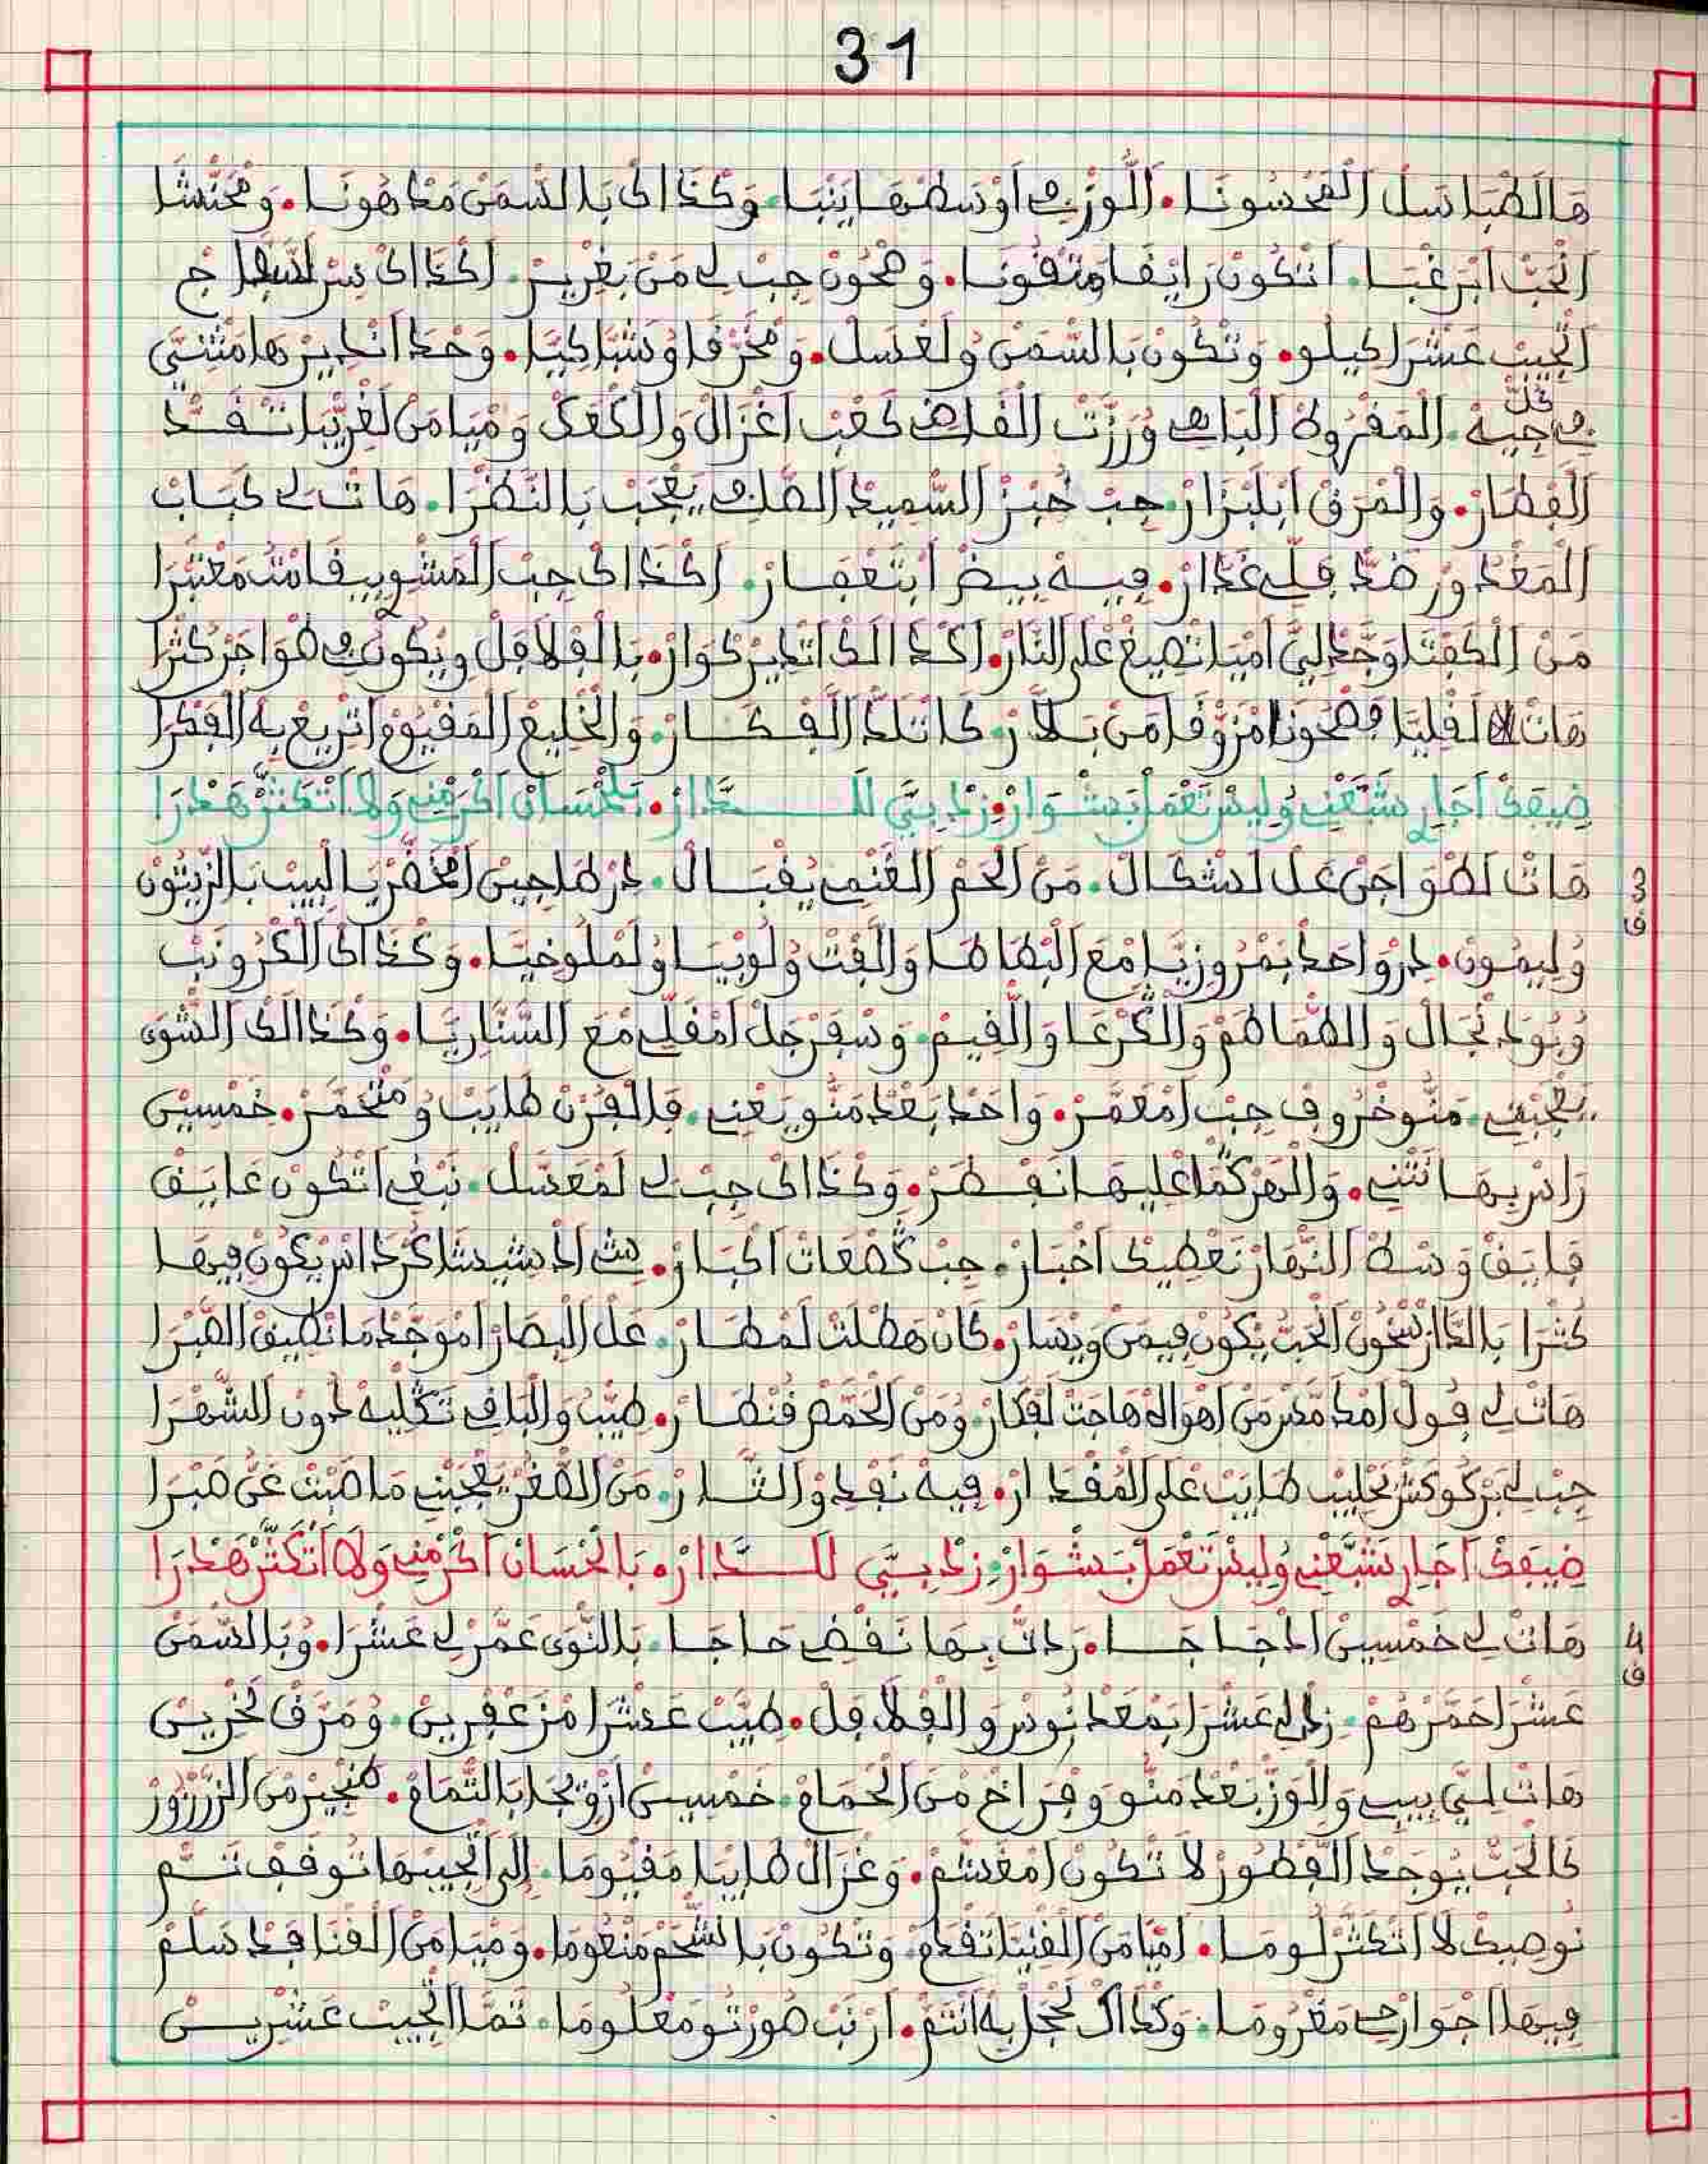 31
هَالَطْبَاسَلْ الْمَحْسُونَا. الْوَزِّ فِي أَوْسَطْهَا يَنْبَا. وَكَذَاكْ بَالسَّمَنْ مَدْهُونَا. وَمْحَنْشَا
الْحَبْ أَبْرَغْبَا. أَتْكُونْ رَايْقَا وَمَتْقُونَا. وَصْحُونْ جِبْ لِي مَنْ بَغْرِيرْ. أَكْذَاكْ
الْجِيبْ عَشْرَا كِيلُو. وَتْكُونْ بَالسَّمَنْ وُلَعْسَلْ. وَمْخَرْقَا وُشَبَّاكِيَّا. وَحْدَا أَنْدِيرْهَا مَثْنِي
فِي كُلّْ جِيهْ. الْمَقْرُوطْ الْبَاهِي وُرَزَّتْ الْقَاضِي كَعْبْ أَغْزَالْ وَالْكَعَكْ وَمْيَا مَنْ لَغْرِيْبَا تَنْقَدّْ
الْفِطَارْ. وَالْمَرَقْ أَبْلَبْزَارْ. جِبْ خُبْزْ السَّمِيدْ الصَّافِي يَعْجَبْ بَالنَّضْرَا. هَاتْ لِي كَبَابْ
الْمَغْدُورْ ضَدّْ فَلِّي غَدَّارْ. فِيهْ بِيضْ أَبْتَعْمَارْ. أَكْذَاكْ جِبْ الْمَشْوِي بِيقَامْتْ مَعْتَبْرَا
مَنْ الْكَفْتَا وَجَّدْ لِيَّ أَمْيَا تْصِيغْ عْلَى النَّارْ. أَكْدَالَكْ أَتْدِيرْ كْوَارْ. بَالْفَلْفَلْ وِيْكُونْ فِي طْوَاجَرْ كَثْرَا
هَاتْ لَقْلِيَّا فَصْحُونَا مْزَوْقَا مَنْ بَلَّارْ. كَاتْلَدّْ الْفْكَارْ. وَالْخَلِيعْ الْمَقْيُومْ أَتْرِيعْ بِهْ الْفَكْرَا
ضِيفَكْ أَجَارِي شَبَّعْنِي وُلِيسْ تَعْمَلْ بَشْوَارْ. زِدْ بِيَّ لَلدَّارْ. بَلَحْسَانْ أَكْرَمْنِي وَلَا أَتْكَثَّرْ هَدْرَا
3
ف
هَاتْ لَطْوَاجَنْ عَلْ لَشْكَالْ. مَنْ لَحَمْ الْغَنْمِي يَقْبَالْ. دِرْ طَاجِينْ أَمْخَضَّرْ يَا لَبِيبْ بَالزِّيتُونْ
وُلِيمُونْ. دِرْ وَاحَدْ بَمْرُوزِيَّا مَعَ الْبْطَاطَا وَالَّفْتْ وُلُوبْيَا وُلَمْلُوخِيَّا. وَكْذَاكْ الْكْرُونَبْ
وُبُودَنْجَالْ وَالطَّمَاطَمْ وَالْكَرْعَا وَالْفِيمْ. وَسْفَرْجَلْ أَمْقَلِّي مْعَ السَّنَّارِيَّا. وَكْذَالَكْ الشّْوَى
يَعْجَبْنِي. مَنُّو خْرُوفْ جِبْ أَمْعَمَّرْ. وَاحَدْ بَعْدْ مَنُّو يَعْنِي. فَالْفُرْنْ طَايَبْ وُمْتْحَمَّرْ. خَمْسِينْ
رَاسْ بِهَا نَثْنِي. وَالْهَرْكْمَا عْلِيهَا نَفْطَرْ. وَكْذَاكْ جِبْ لِي لَمْعَسَّلْ. نَبْغِي أَتْكُونْ عَايَقْ
فَايَقْ وَسْطْ النّْهَارْ نَعْطِيكْ أَخْبَارْ. جِبْ قَصْعَاتْ أَكْبَارْ. شِي الْدَشِيشَا كَرْدَاسْ يْكُونْ فِيهَا
كَثْرَا بَالدَّارْسْحُونْ الْحَبّْ يْكُونْ فِيمَنْ وِيسَارْ. كَانْ هَطْلَتْ لَمْطَارْ. عَلْ الْبْصَارْ أَمْوَجَّدْ مَا نْطِيقْ الصَّبْرَا
هَاتْ لِي فُولْ أَمْدَمَّسْ مَنْ أَهْوَالَهْ هَاجَتْ لَفْكَارْ. وُمَنْ الْحَمَّصْ قَنْطَارْ. طِيّْبْ وَالْبَاقِي تَكْلِيهْ طُونْ الشَّهْرَا
جِبْ لِي بَرْكُوكَشْ بَحْلِيبْ طَايَبْ عْلَى الْمُقْدَارْ. فِيهْ نَفْدُوا الثَّارْ. مَنْ الصّْغُرْ يَعْجَبْنِي مَا صَبْتْ عَنُّ صَبْرَا
ضِيفَكْ أَجَارِي شَبَّعْنِي وُلِيسْ تَعْمَلْ بَشْوَارْ. زِدْ بِيَّ لَلدَّارْ. بَالْحْسَانْ أَكْرَمْنِي وَلَا أَتْكَثَّرْ هَدْرَا
4
ف
هَاتْ لِي خَمْسِينْ أَدْجَاجَا. رَانِي بِهَا نَقْضِي حَاجَا. بَالنّْوَى عَمَّرْ لِي عَشْرَا. وُبَالسّْمَنْ
عَشْرَا حَمَّرْهُمْ. زِدْ لِي عَشْرَا بَمْعَدْنُوسْ وَالْفَلْفَلْ. طِيّْبْ عَشْرَا مْزَعْفْرِينْ. وُمَرَّقْ لُخْرِينْ
هَاتْ لِيَّ بِيبِي وَالْوَزّْ بَعْدْ مَنُّو وَفْرَاخْ مْنَ الْحْمَامْ. خَمْسِينْ أَزْوِيجَا بَالتّْمَامْ. طَنْجِيرْ مَنْ الزَّرْزُورْ
كَالْحَبّْ يُوجَدْ الْفْطُورْ لَا تْكُونْ أَمْغَشَّمْ. وَغْزَالْ طَايْبَا مَقْيُومَا. إِلَى أَتْجِيبْهَا تُوقَفْ ثَمّْ
نُوصِيكْ لَا أَتْكَثَّرْ لُومَا. أَمْيَا مَنْ الْقْنِيَّا تَقْدَمْ. وَتْكُونْ بَالشّْحَمْ مَنْعُومَا. وَمْيَا مَنْ الْقْنَافَدْ سَلَّمْ
فِيهَا أَجْوَارْحِي مَغْرُومَا. وَكْدَاكْ لَحْجَلْ بِهْ أَنْتَمّْ. أَرْنَبْ صُورْتُو مَعْلُومَا. ثَمَّا أَتْجِيبْ عَشْرِيسْ